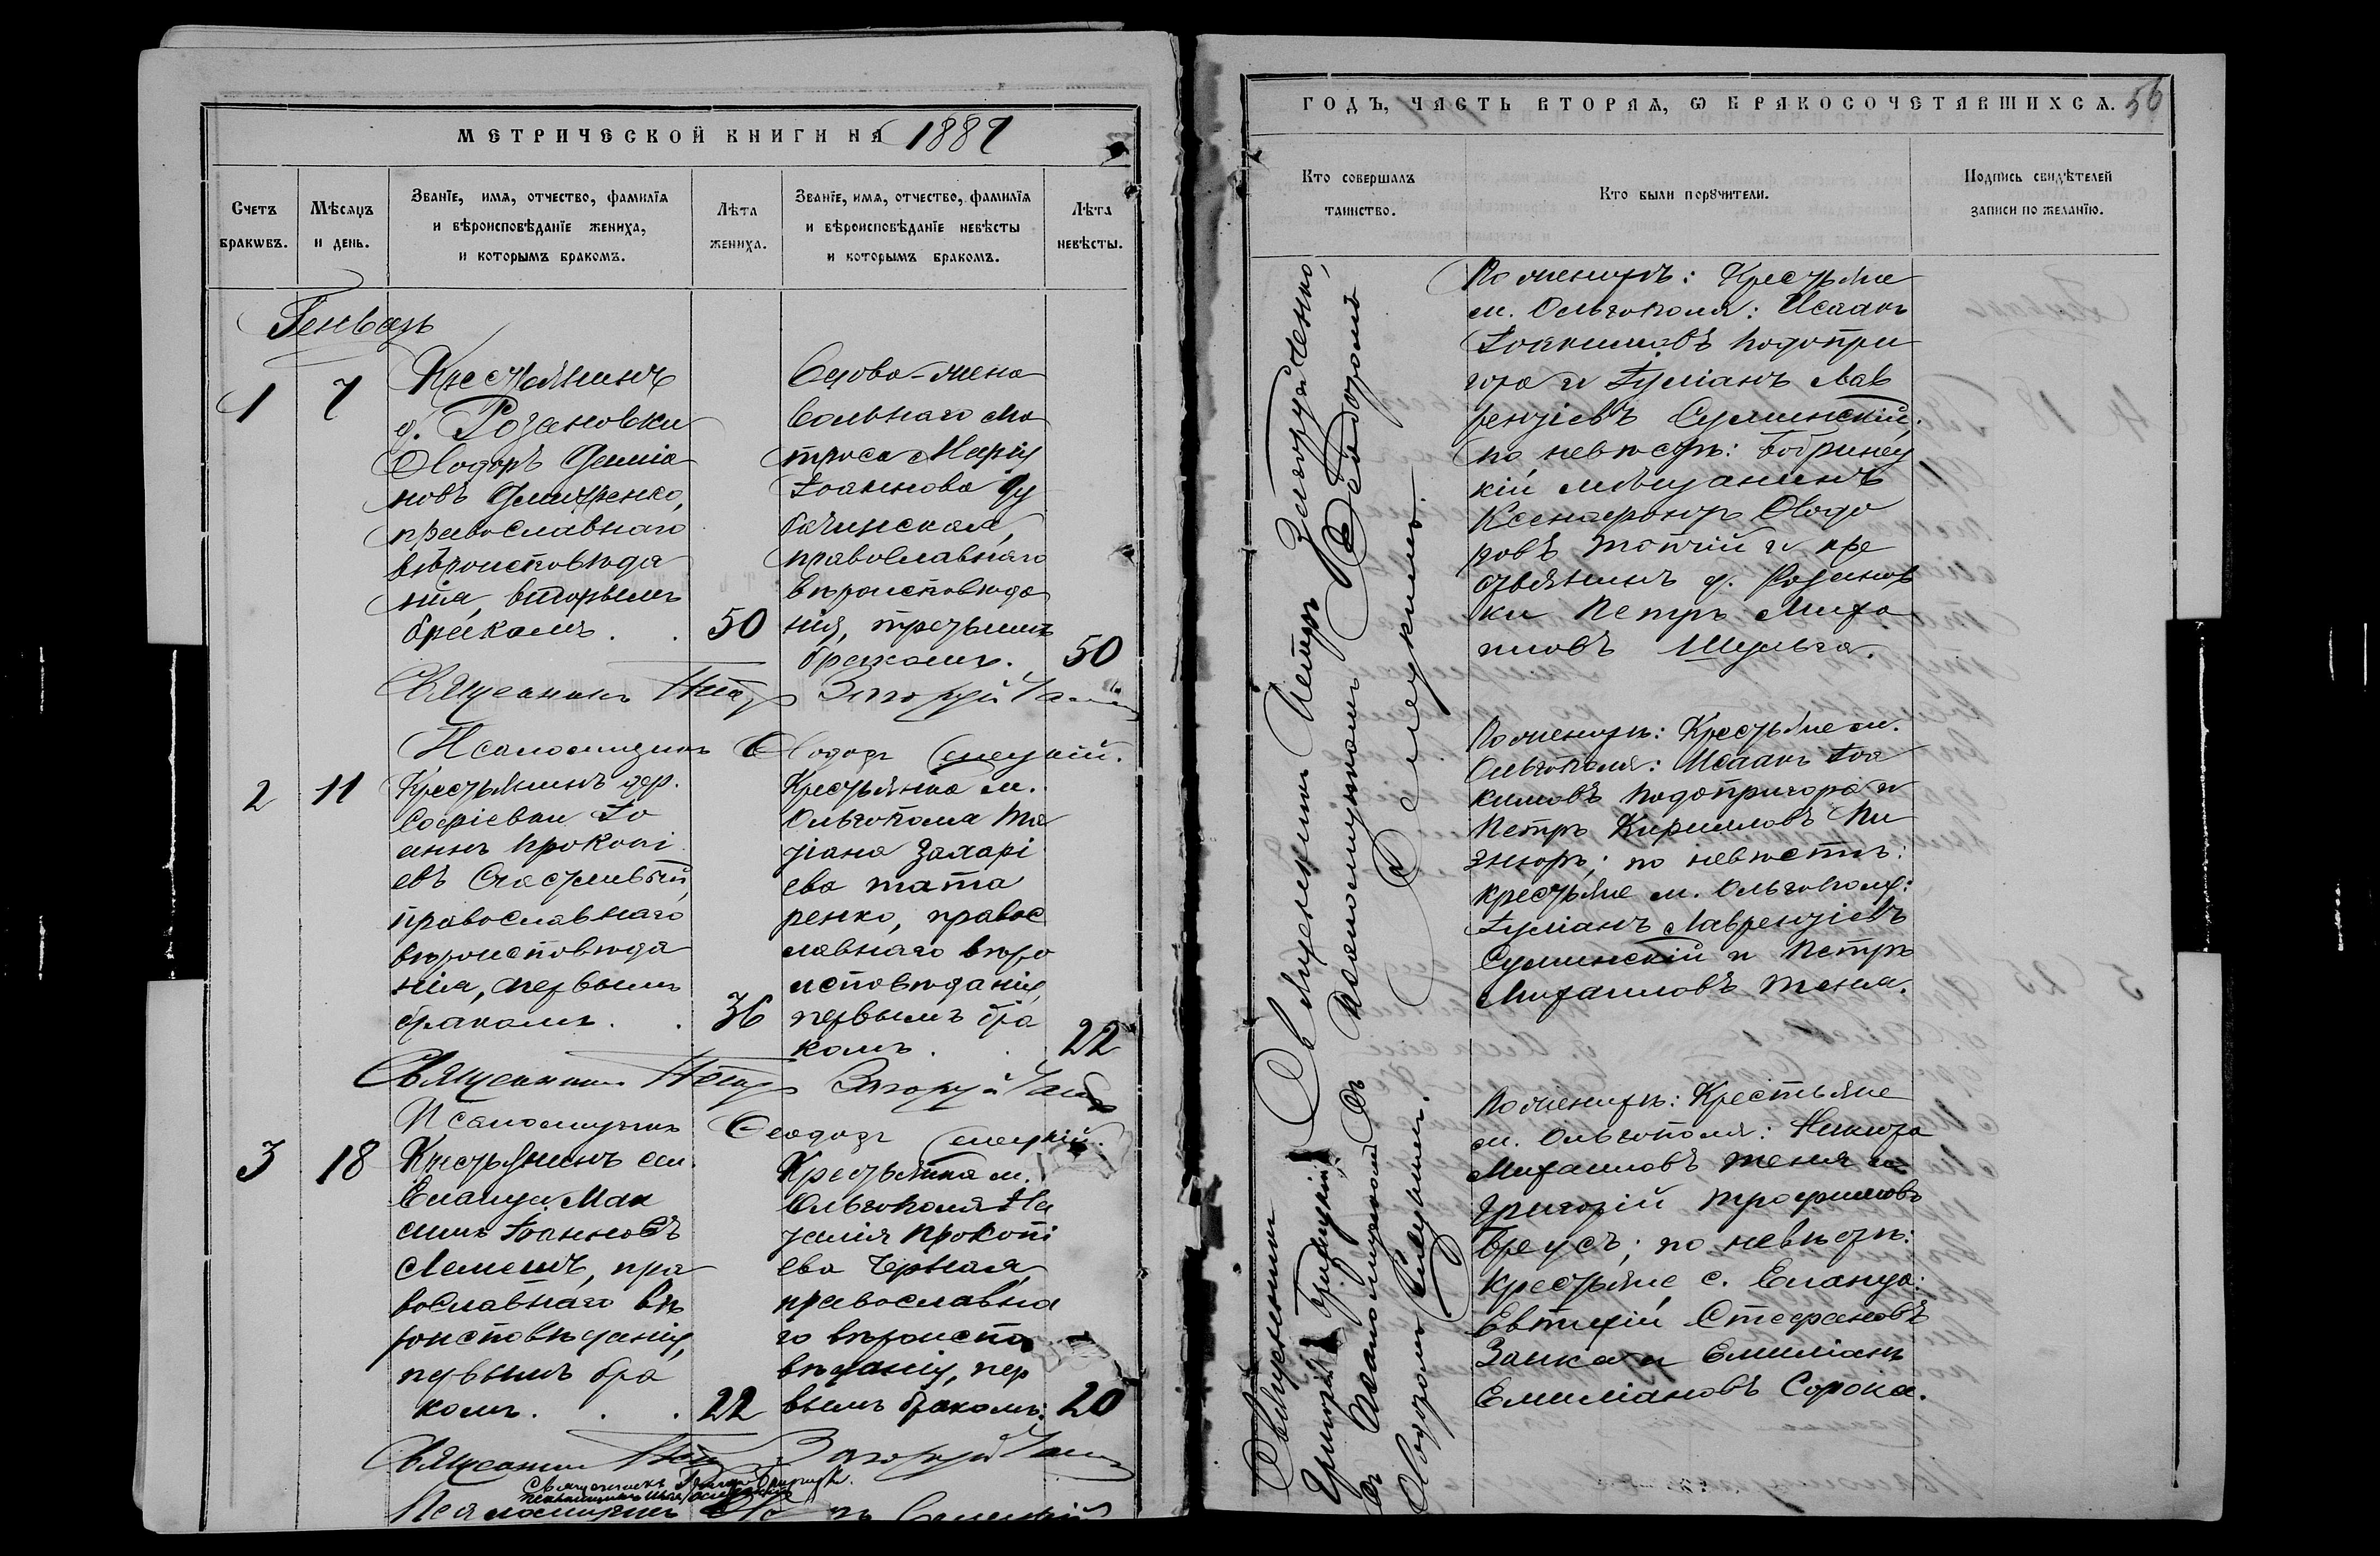 МЕТРИЧЕСКОЙ КНИГИ НА 1889
Счетъ
браковъ.
Мѣсяцъ
и день.
Званіе, имя, отчество, фамилія
и вѣроисповѣданіе жениха,
и которымъ бракомъ.
Лѣта
жениха.
Званіе, имя, отчество, фамилія
и вѣроисповѣданіе невѣсты
и которымъ бракомъ.
Лѣта
невѣсты.
Генварь
1
7
Крестьянинъ
д. Розановки
Ѳеодоръ Даміа
новъ Дмитренко,
православнаго
вѣроисповѣда
нія, вторымъ
бракомъ
50
Вдова-жена
вольнаго ма
троса Марія
Іоаннова
православнаго
вѣроисповѣда
нія, третьимъ
бракомъ.
50
Священникъ Петръ
Псаломщикъ Ѳеодоръ
2
11
Крестьянинъ дер.
Софіевки Іо
аннъ Прокопі
евъ Счастливый,
православнаго
вѣроисповѣда
нія, первымъ
бракомъ.
36
Крестьянка м.
Ольгополя Та
тіана Захарі
ева Тата
ренко, правос
лавнаго вѣро
исповѣданія,
первымъ бра
комъ.
22
Священникъ Петръ
Псаломщикъ Ѳеодоръ
3
18
Крестьянинъ
Еланца Мак
симъ Іоанновъ
Лемешъ, пра
вославнаго вѣ
роисповѣданія,
первымъ бра
комъ.
22
Крестьянка м.
Ольгополя На
талія Прокопі
ева Черная,
православна
го вѣроиспо
вѣданія, пер
вымъ бракомъ.
20
Священникъ Петръ
Псаломщикъ
ГОДЪ, ЧАСТЬ ВТОРАЯ, Ѡ БРАКОСОЧЕТАВШИХСЯ. 56
Кто совершалъ
таинство.
Кто были поручители.
Подпись свидѣтелей
записи по желанію.
Священникъ Петръ
съ Псаломщикомъ Ѳеодоромъ
Священникъ
Григорій
съ Псаломщикомъ
Ѳеодоромъ
По женихѣ: Крестьяне
м. Ольгополя: Исаакъ
Іоакимовъ Подопри
гора и Іуліанъ Лав
рентіевъ Сулинскій;
по невѣстѣ: Бобринец
кій мѣщанинъ
Ксенофонтъ Ѳеодо
ровъ Топчій и кре
стьянинъ д. Розанов
ки Петръ Миха
иловъ Шульга.
По женихѣ: Крестьяне м.
Ольгополя: Исаакъ Іоа
кимовъ Подопригора и
Петръ Кирилловъ
по невѣстѣ:
крестьяне м. Ольгополя:
Іуліанъ Лаврентіевъ
Сулинскій и Петръ
Михаиловъ Теня.
По женихѣ: Крестьяне
м. Ольгополя: Никита
Михаиловъ Теня и
Григорій Трофимовъ
Бреусъ; по невѣстѣ:
крестьяне с. Еланца:
Евтихій Стефановъ
Заика и Емиліанъ
Емиліановъ Сорока.